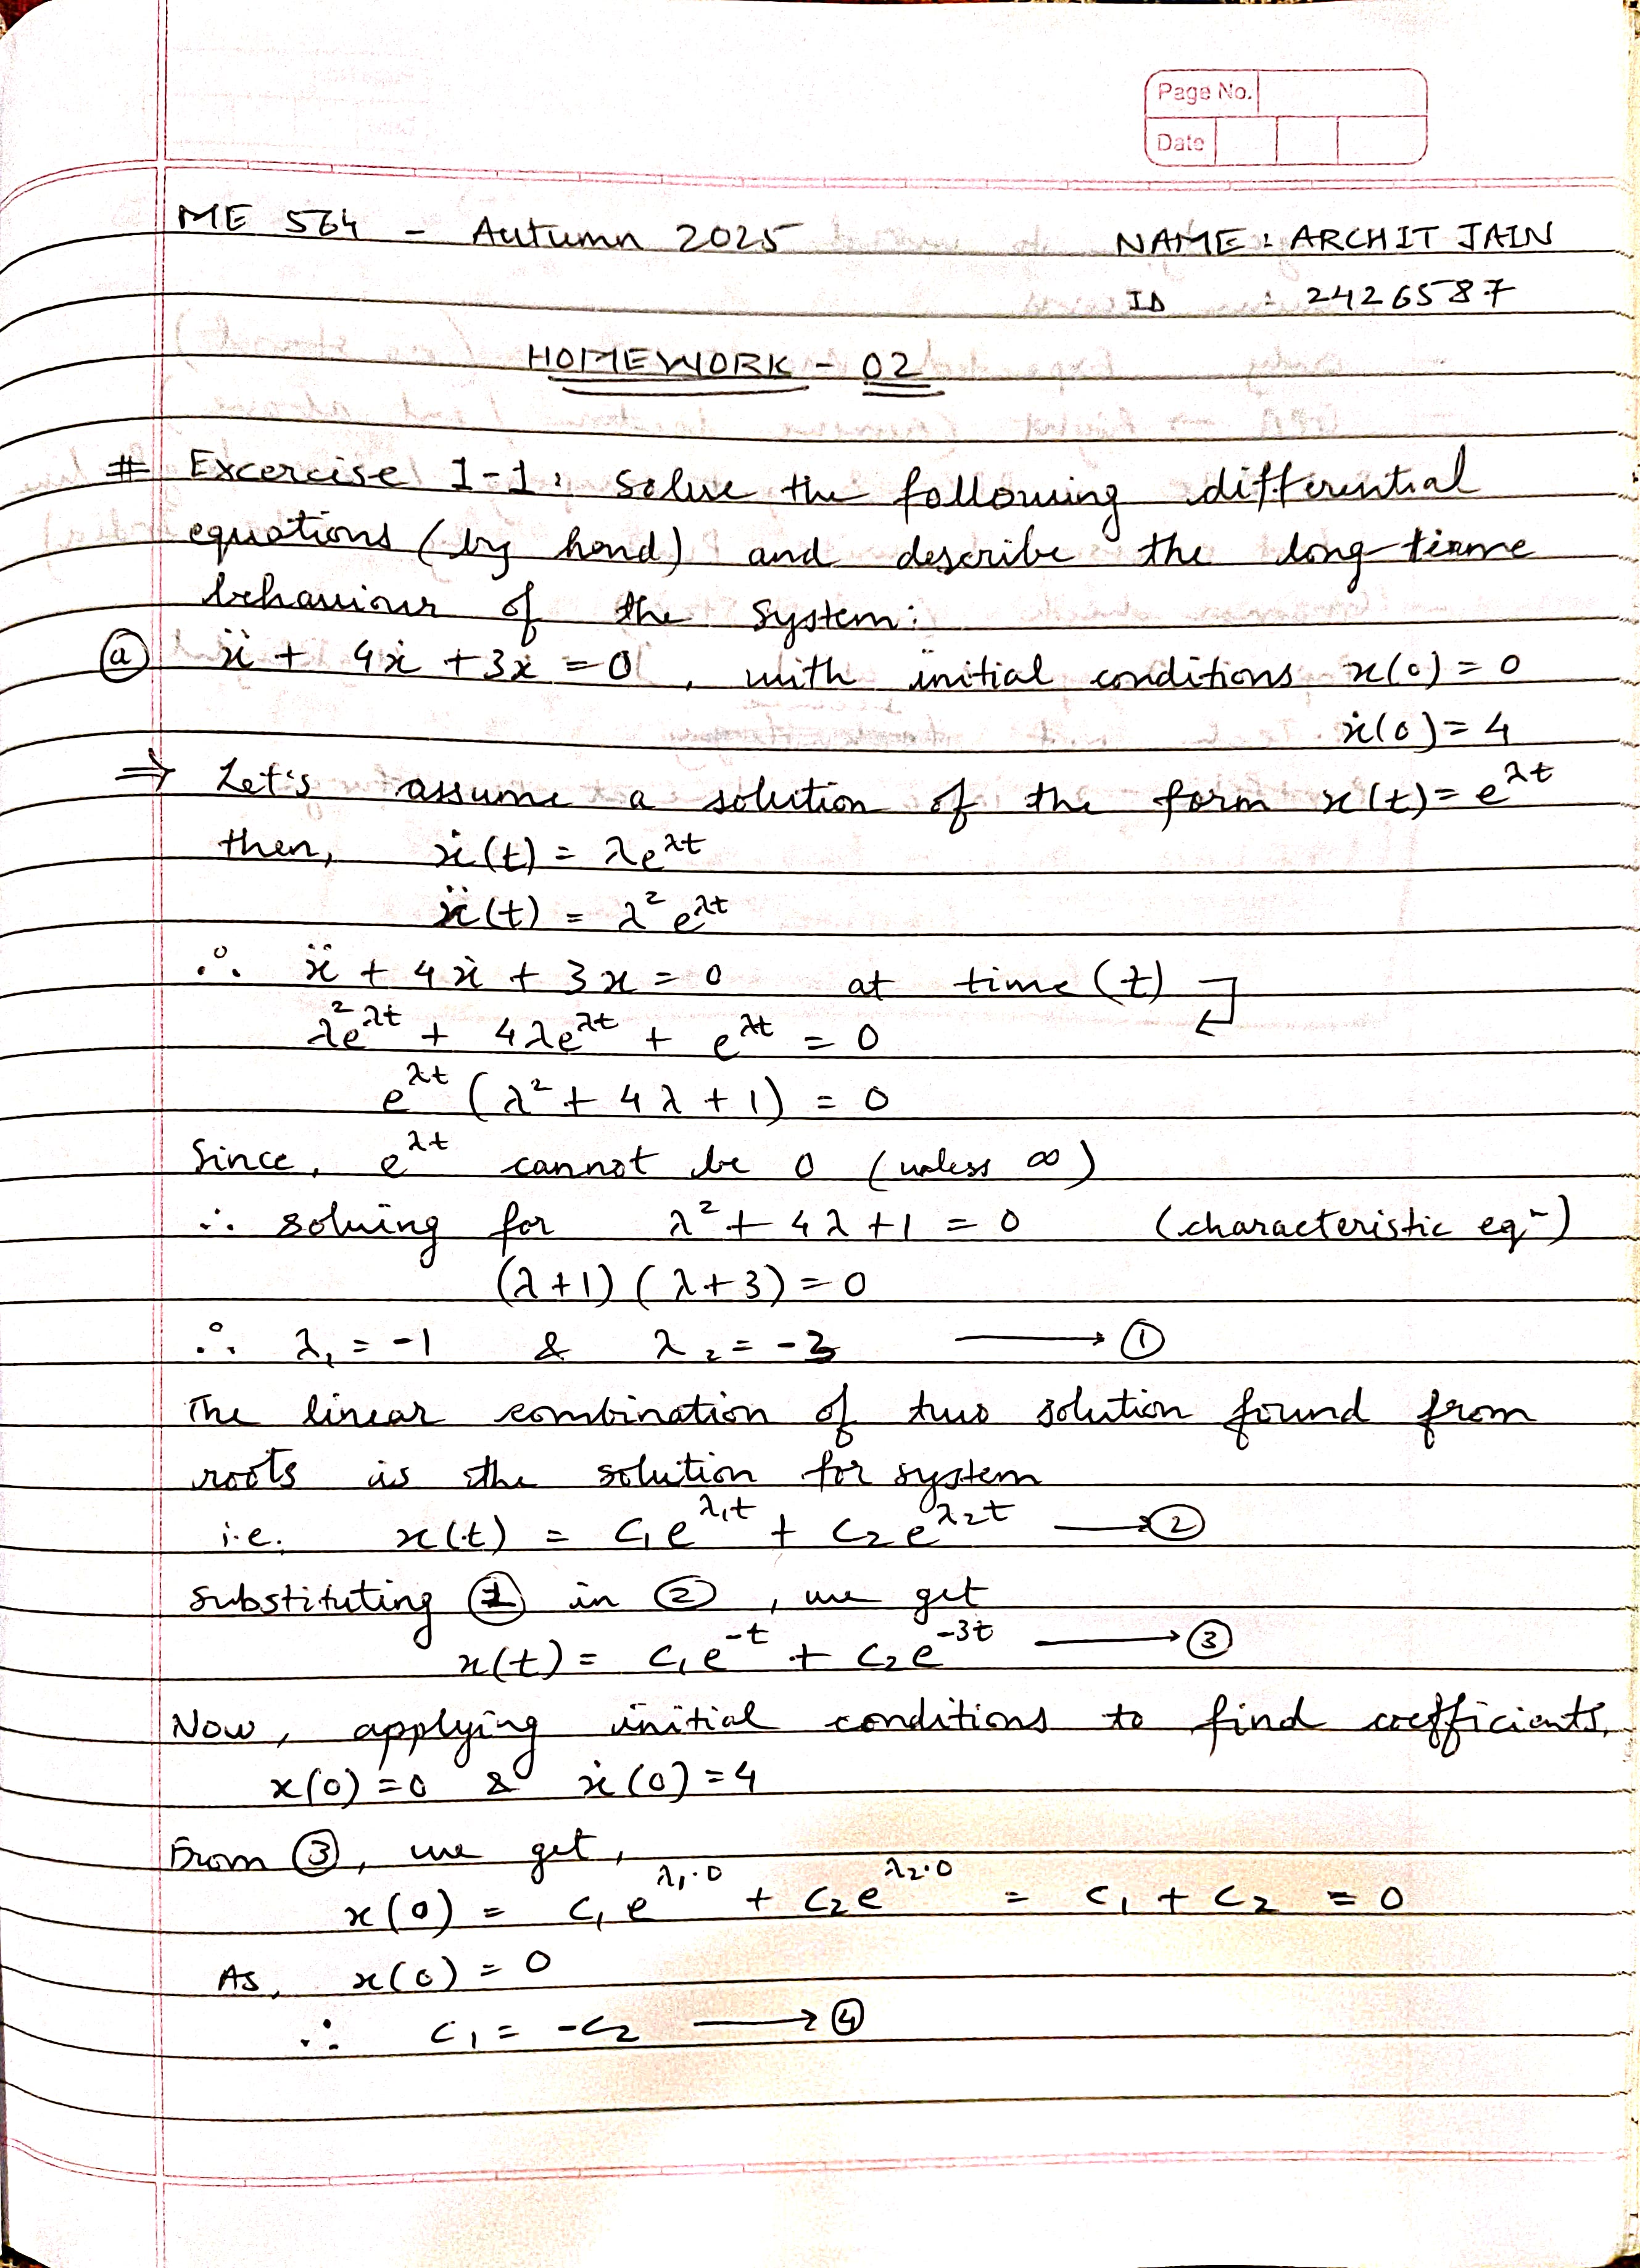 Page No.
Date
ME 564 - Autumn 2025 NAME: ARCHIT JAIN
ID : 2426587
HOMEWORK - 02
# Excercise 1-1: Solve the following differential
equations (by hand) and describe the long-time
behaviour of the system:
ⓐ ẍ + 4ẋ + 3x = 0, with initial conditions x(0) = 0
ẋ(0) = 4
⇒ Let's assume a solution of the form x(t) = e^λt
then, ẋ(t) = λe^λt
ẍ(t) = λ² e^λt
∴ ẍ + 4ẋ + 3x = 0 at time (t) ↵
λ²e^λt + 4λe^λt + e^λt = 0
e^λt (λ² + 4λ + 1) = 0
Since, e^λt cannot be 0 (unless ∞)
∴ solving for λ² + 4λ + 1 = 0 (characteristic eqⁿ)
(λ+1) (λ+3) = 0
∴ λ₁ = -1 & λ₂ = -3 ⟶ ①
The linear combination of two solution found from
roots is the solution for system
i.e. x(t) = c₁e^λ₁t + c₂e^λ₂t ⟶ ②
Substituting ① in ②, we get
x(t) = c₁e^-t + c₂e^-3t ⟶ ③
Now, applying initial conditions to find coefficients,
x(0) = 0 & ẋ(0) = 4
From ③, we get,
x(0) = c₁e^λ₁·0 + c₂e^λ₂·0 = c₁ + c₂ = 0
As, x(0) = 0
∴ c₁ = -c₂ ⟶ ④